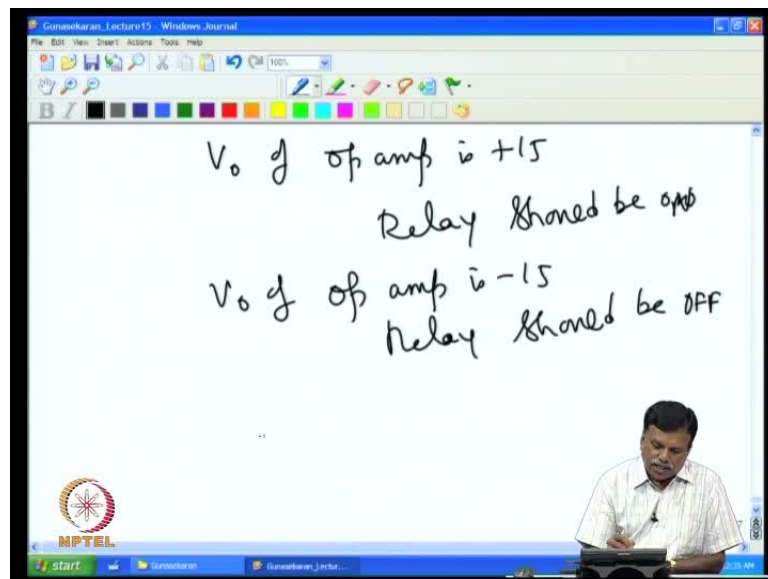 Gunasekaran_Lecture15 - Windows Journal
File Edit View Insert Actions Tools Help
100%
B I
V₀ of op amp is +15
Relay Should be
V₀ of op amp is -15
Relay Should be OFF
NPTEL
start
Gunasekaran
Gunasekaran_Lectur...
2:35 AM